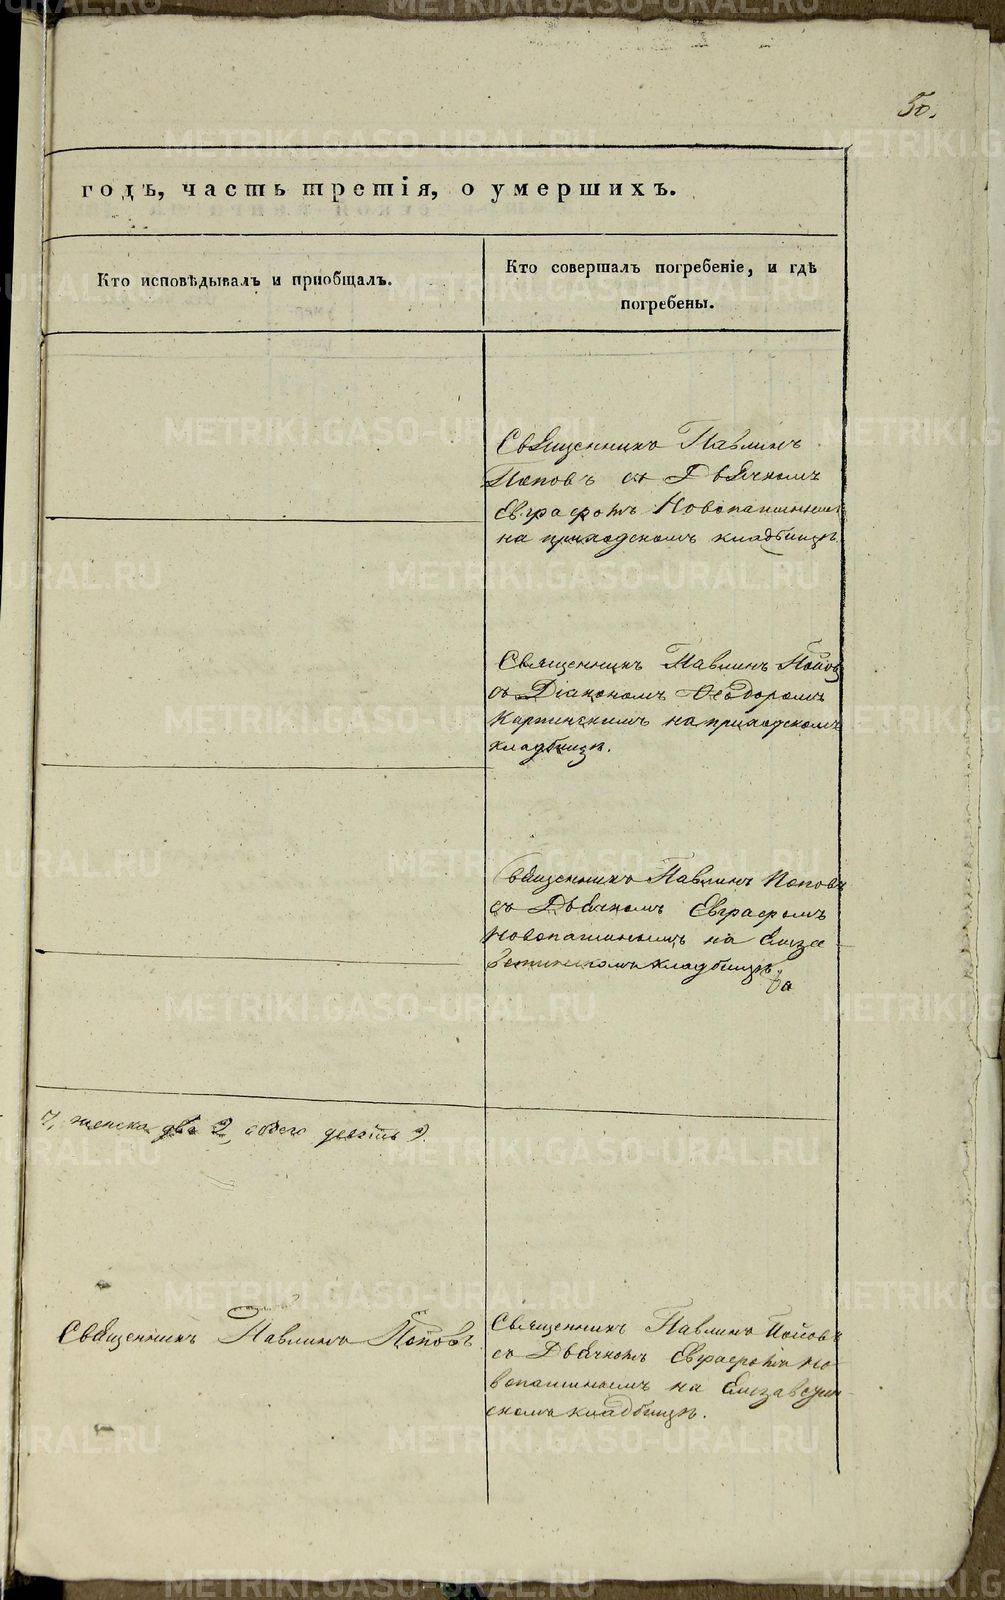 50.
годъ, часть третія, о умершихъ.
Кто исповѣдывалъ и пріобщалъ.
Кто совершалъ погребеніе, и гдѣ
погребены.
Священникъ Павлинъ
Поповъ съ Дьячкомъ
Евграфомъ Новопашиннымъ
на приходскомъ кладбищѣ.
Священникъ Павлинъ Поповъ
съ Діакономъ Ѳеодоромъ
Карпинскимъ на приходскомъ
кладбищѣ.
Священникъ Павлинъ Поповъ
съ Дьячкомъ Евграфомъ
Новопашинымъ на Елиза
ветинскомъ кладбищѣ.
7, женска два 2, обоего девять 9.
Священникъ Павлинъ Поповъ.
Священникъ Павлинъ Поповъ
съ Дьячкомъ Евграфомъ Но
вопашинымъ на Елизаветин
скомъ кладбищѣ.
METRIKI.GASO-URAL.RU